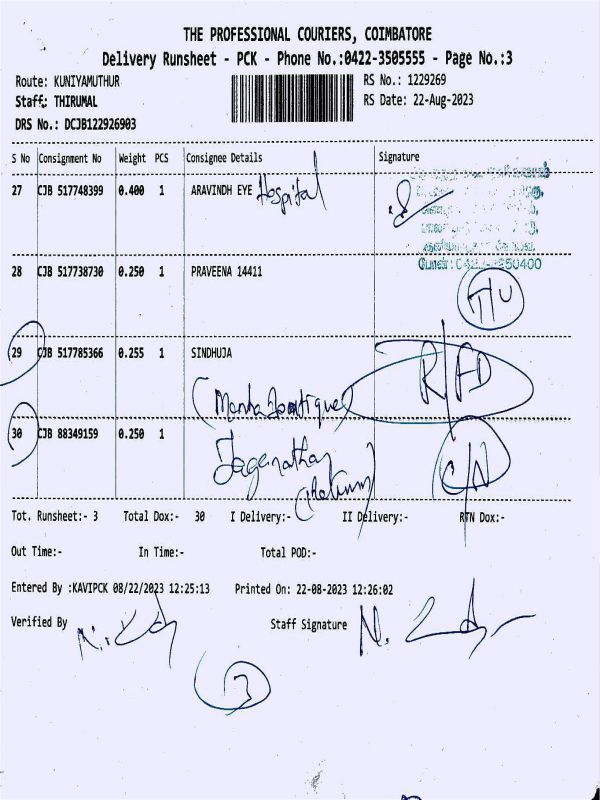 THE PROFESSIONAL COURIERS, COIMBATORE
Delivery Runsheet - PCK - Phone No.:0422-3505555 - Page No.:3
Route: KUNIYAMUTHUR
RS No.: 1229269
Staff: THIRUMAL
RS Date: 22-Aug-2023
DRS No.: DCJB122926903
S No Consignment No Weight PCS Consignee Details Signature
27 CJB 517748399 0.400 1 ARAVINDH EYE Hospital
28 CJB 517738730 0.250 1 PRAVEENA 14411
29 CJB 517785366 0.255 1 SINDHUJA
30 CJB 88349159 0.250 1
Tot. Runsheet:- 3 Total Dox:- 30 I Delivery:- II Delivery:- RTN Dox:-
Out Time:- In Time:- Total POD:-
Entered By :KAVIPCK 08/22/2023 12:25:13 Printed On: 22-08-2023 12:26:02
Verified By Staff Signature
3